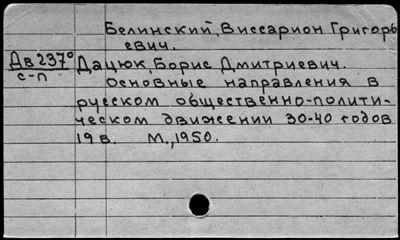 Белинский, Виссарион Григорь
евич.
Дв237° Дацюк, Борис Дмитриевич.
с-п
Основные направления в
русском общественно-полити-
ческом движении 30-40 годов
19 в. М., 1950.